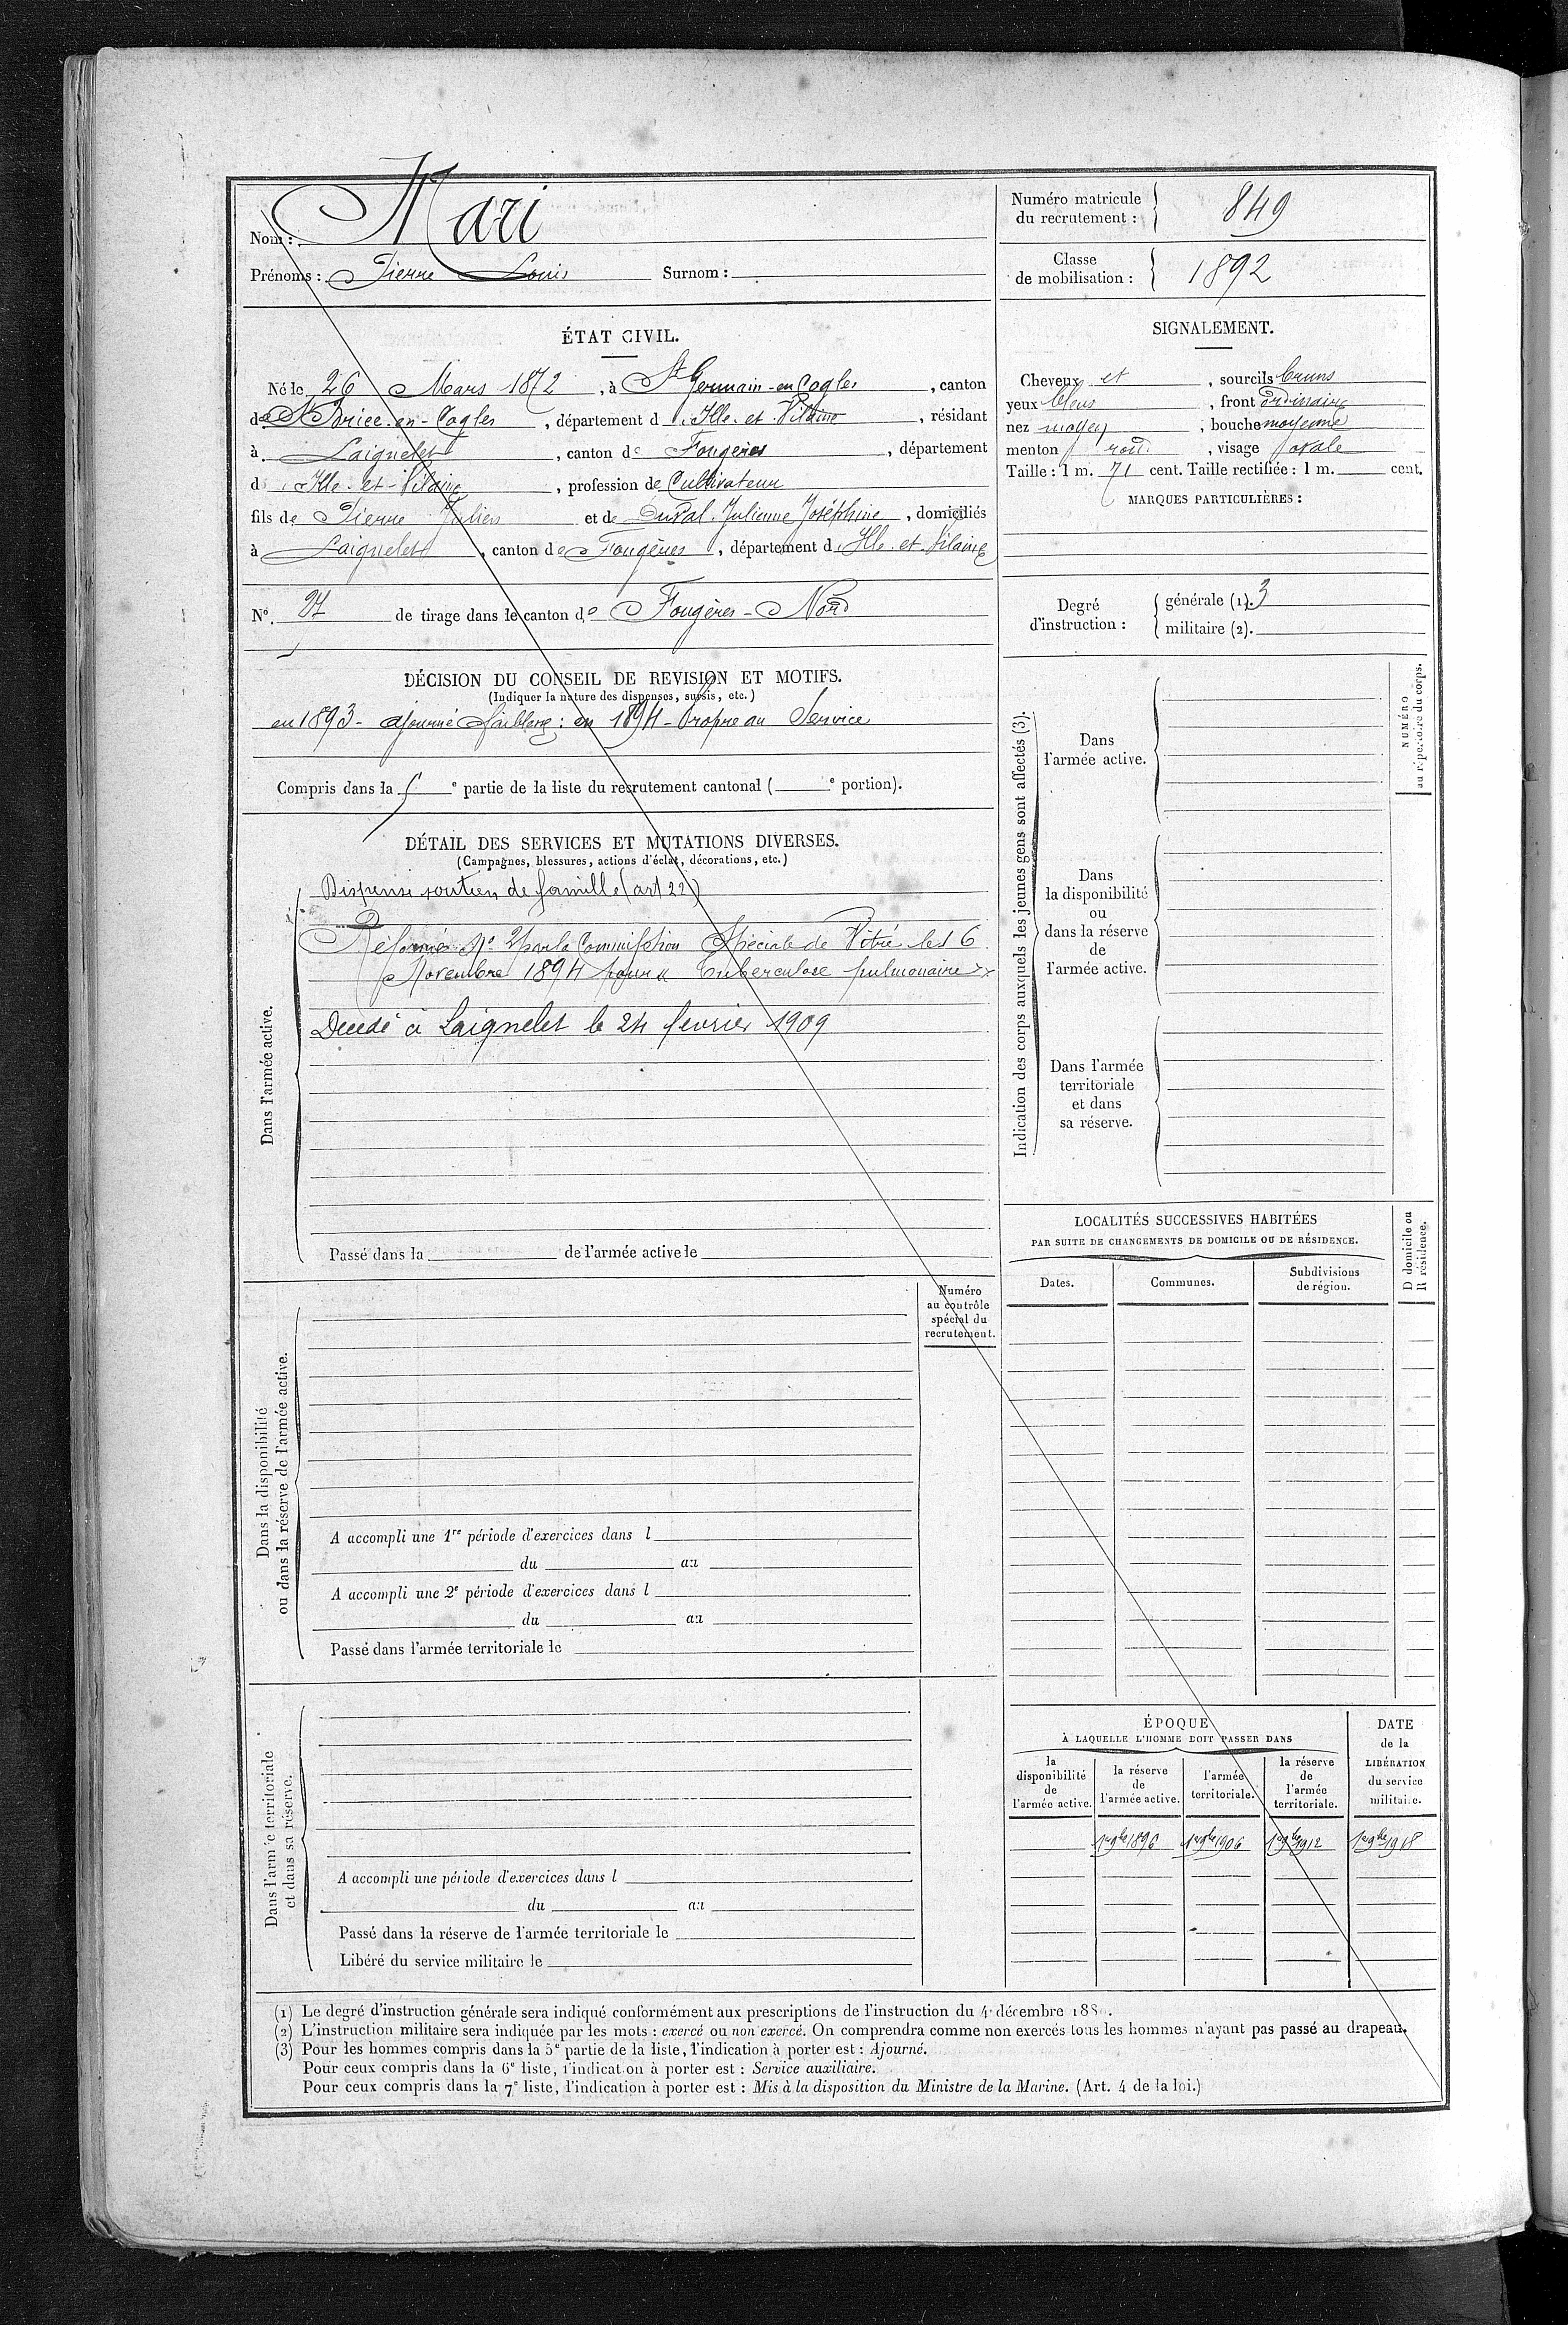 Nom : Mari
Prénoms : Pierre Louis Surnom :
Numéro matricule du recrutement : 849
Classe de mobilisation : 1892
ÉTAT CIVIL.
Né le 26 Mars 1872, à St Germain-en-Cogles, canton
de St Brice-en-Cogles, département d'Ille-et-Vilaine, résidant
à Laignelet, canton de Fougères, département
d'Ille-et-Vilaine, profession de Cultivateur
fils de Pierre Julien et de Duval Julienne Joséphine, domiciliés
à Laignelet, canton de Fougères, département d'Ille-et-Vilaine
N° 27 de tirage dans le canton de Fougères-Nord
DÉCISION DU CONSEIL DE REVISION ET MOTIFS.
(Indiquer la nature des dispenses, sursis, etc.)
en 1893 - ajourné faiblesse : en 1894 - Propre au Service
Compris dans la e partie de la liste du recrutement cantonal ( e portion).
DÉTAIL DES SERVICES ET MUTATIONS DIVERSES.
(Campagnes, blessures, actions d'éclat, décorations, etc.)
Dans l'armée active.
Dispensé soutien de famille (art 22)
Réformé N° 2 par la Commission Spéciale de Vitré le 16
Novembre 1894 pour « Tuberculose pulmonaire »
Décédé à Laignelet le 24 fevrier 1909
Passé dans la de l'armée active le
Dans la disponibilité
ou dans la réserve de l'armée active.
Numéro
au contrôle
spécial du
recrutement.
A accompli une 1re période d'exercices dans l
du au
A accompli une 2e période d'exercices dans l
du au
Passé dans l'armée territoriale le
Dans l'armée territoriale
et dans sa réserve.
A accompli une période d'exercices dans l
du au
Passé dans la réserve de l'armée territoriale le
Libéré du service militaire le
SIGNALEMENT.
Cheveux et, sourcils bruns
yeux bleus, front ordinaire
nez moyen, bouche moyenne
menton rond, visage ovale
Taille : 1 m. 71 cent. Taille rectifiée : 1 m. cent.
MARQUES PARTICULIÈRES :
Degré d'instruction :
générale (1). 3
militaire (2).
Indication des corps auxquels les jeunes gens sont affectés (3).
NUMÉRO
au répertoire du corps.
Dans
l'armée active.
Dans
la disponibilité
ou
dans la réserve
de
l'armée active.
Dans l'armée
territoriale
et dans
sa réserve.
LOCALITÉS SUCCESSIVES HABITÉES
PAR SUITE DE CHANGEMENTS DE DOMICILE OU DE RÉSIDENCE.
Dates.
Communes.
Subdivisions
de région.
D domicile ou
R résidence.
ÉPOQUE
À LAQUELLE L'HOMME DOIT PASSER DANS
la
disponibilité
de
l'armée active.
la réserve
de
l'armée active.
l'armée
territoriale.
la réserve
de
l'armée
territoriale.
DATE
de la
LIBÉRATION
du service
militaire.
1er 9bre 1896 1er 9bre 1906 1er 9bre 1912 1er 9bre 1918
(1) Le degré d'instruction générale sera indiqué conformément aux prescriptions de l'instruction du 4 décembre
(2) L'instruction militaire sera indiquée par les mots : exercé ou non exercé. On comprendra comme non exercés tous les hommes n'ayant pas passé au drapeau.
(3) Pour les hommes compris dans la 5e partie de la liste, l'indication à porter est : Ajourné.
Pour ceux compris dans la 6e liste, l'indication à porter est : Service auxiliaire.
Pour ceux compris dans la 7e liste, l'indication à porter est : Mis à la disposition du Ministre de la Marine. (Art. 4 de la loi.)